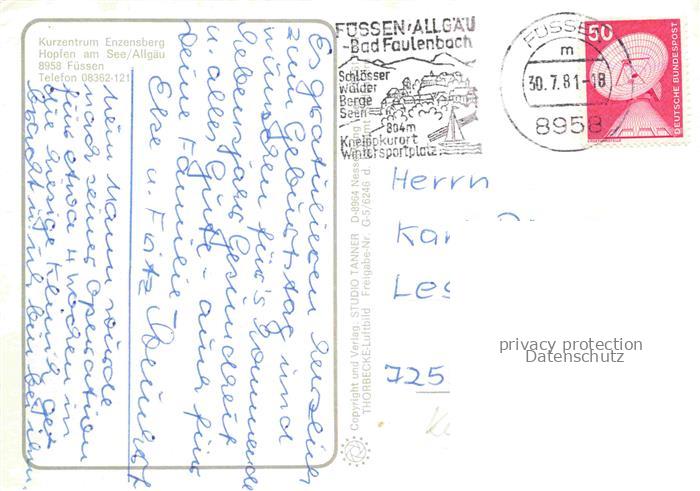 Kurzentrum Enzensberg
Hopfen am See/Allgäu
8958 Füssen
Telefon 08362-121
Es gratulieren herzlich
zum Geburtstag und
wünschen für's kommende
Lebensjahr Gesundheit
u. alles Gute - auch für
Deine Familie
Else u. Fritz
Mein Mann wurde
nach seiner Operation
für etwa 4 Wochen in
die hiesige Klinik
Copyright und Verlag. STUDIO TANNER D-8964 Nesselwang
THORBECKE-Luftbild Freigabe-Nr. G-5/6246 d.
FÜSSEN/ALLGÄU
-Bad Faulenbach
Schlösser
wälder
Berge
Seen
804m
Kneippkurort
Wintersportplatz
FÜSSEN
m
30.7.81-18
8958
50
DEUTSCHE BUNDESPOST
Herrn
Kar
Les
725
privacy protection
Datenschutz